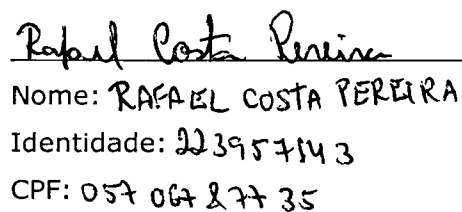 Rafael Costa Pereira
Nome: RAFAEL COSTA PEREIRA
Identidade: 223957143
CPF: 057 067 877 35